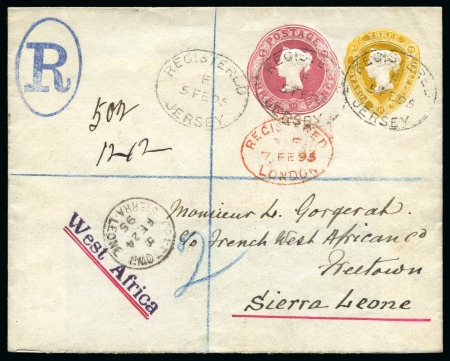 R
REGISTERED
5 FE 95
JERSEY
POSTAGE
REGISTERED
JERSEY
THREE
REGISTERED
JERSEY
REGISTERED
7 FE 95
LONDON
502
1262
SIERRA-LEONE
FE 24
95
West Africa
2
Monsieur L. Gorgerat
c/o French West African Co
Freetown
Sierra Leone